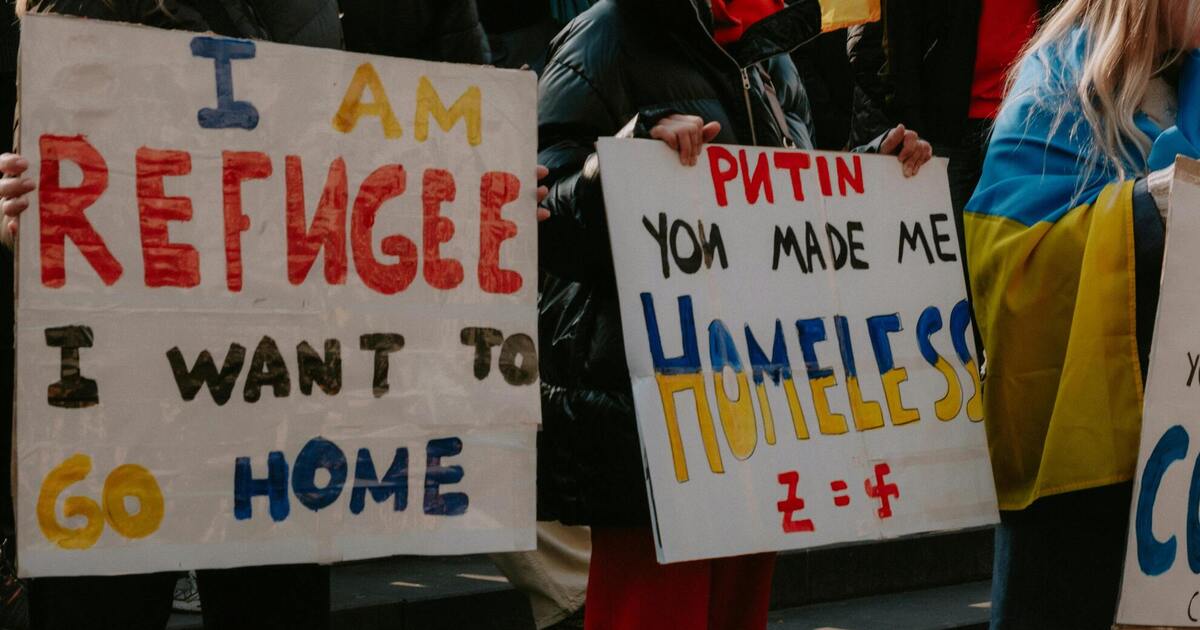 I AM
REFИGEE
I WANT TO
GO HOME
PИTIN
YOИ MADE ME
HOMELESS
Z = 卐